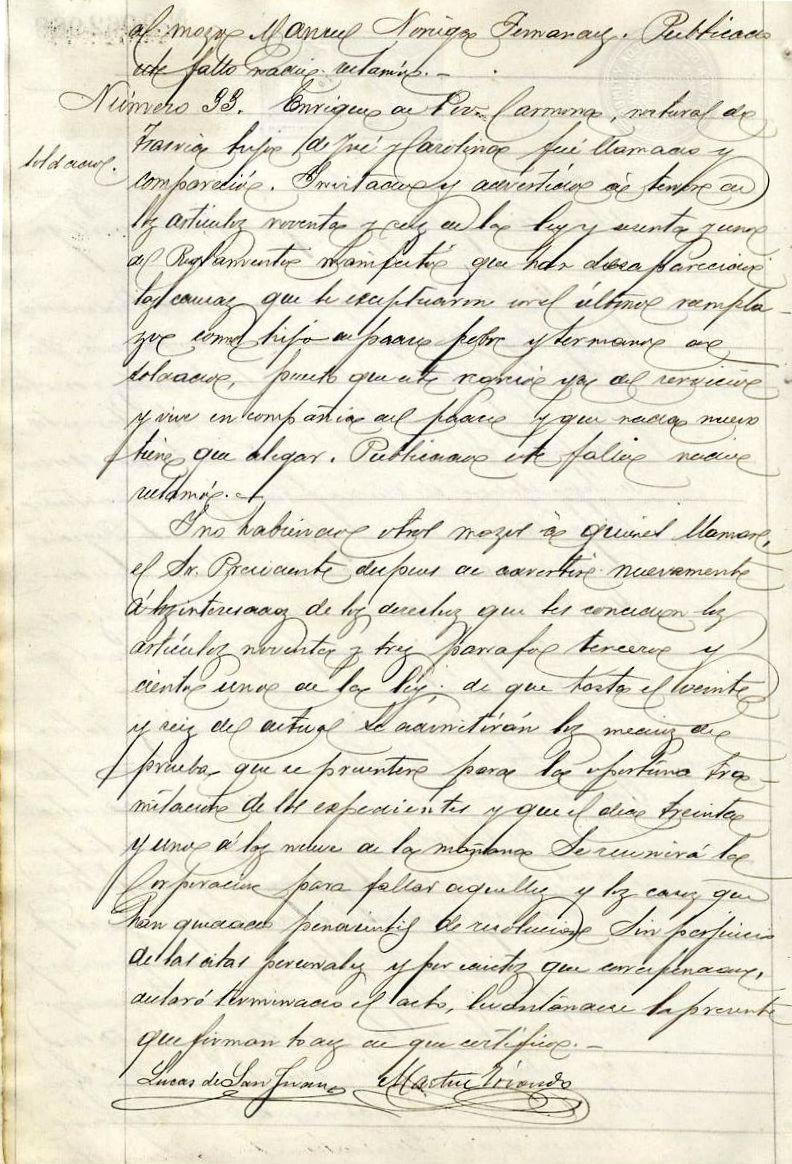 al mozo Manuel Noriega Fernandez. Publicado
este fallo nadie reclamó.—
Número 33. Enrique de Carmona, natural de
hijo de José y Carolina fué llamado y
soldado.
compareció. Invitado y advertido á tenor de
los artículos noventa y seis de la ley y sesenta y uno
del Reglamento manifestó que han desaparecido
las causas que le exceptuaron en el último reempla-
zo como hijo de padre pobre y hermano de
soldado, puesto que este regresó ya del servicio
y vive en compañia del padre y que nada nuevo
tiene que alegar. Publicado este fallo nadie
reclamó.—
Y no habiendo otros mozos á quienes llamar,
el Sr. Presidente despues de advertir nuevamente
á los interesados de los derechos que les conceden los
artículos noventa y tres parrafo tercero y
ciento uno de la ley. de que hasta el veinte
y seis del actual se admitirán los medios de
prueba que se presenten para la oportuna tra-
mitacion de los expedientes y que el dia treinta
y uno á las nueve de la mañana se reunirá la
Corporacion para fallar aquellos y los casos que
han quedado pendientes de resolucion sin perjuicio
de las citas personales y por edictos que correspondan,
declaró terminado el acto, levantándose la presente
que firman todos de que certifico.—
Lucas de San Juan Martin